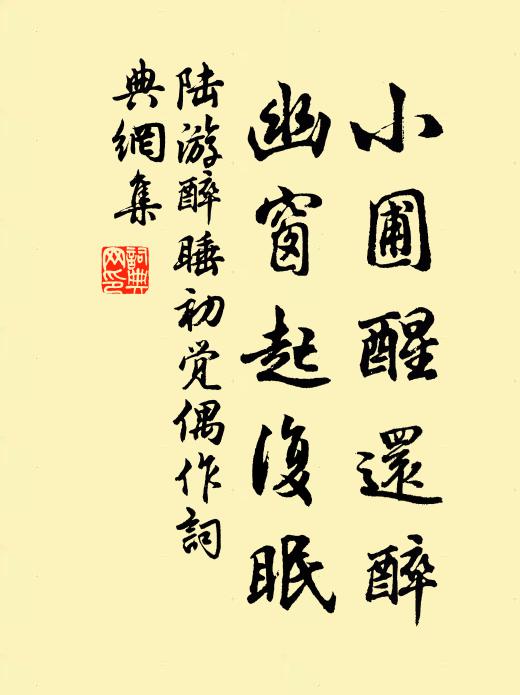 小圃醒還醉
幽窗起復眠
陆游醉睡初觉偶作詞
典網集
詞典
网印